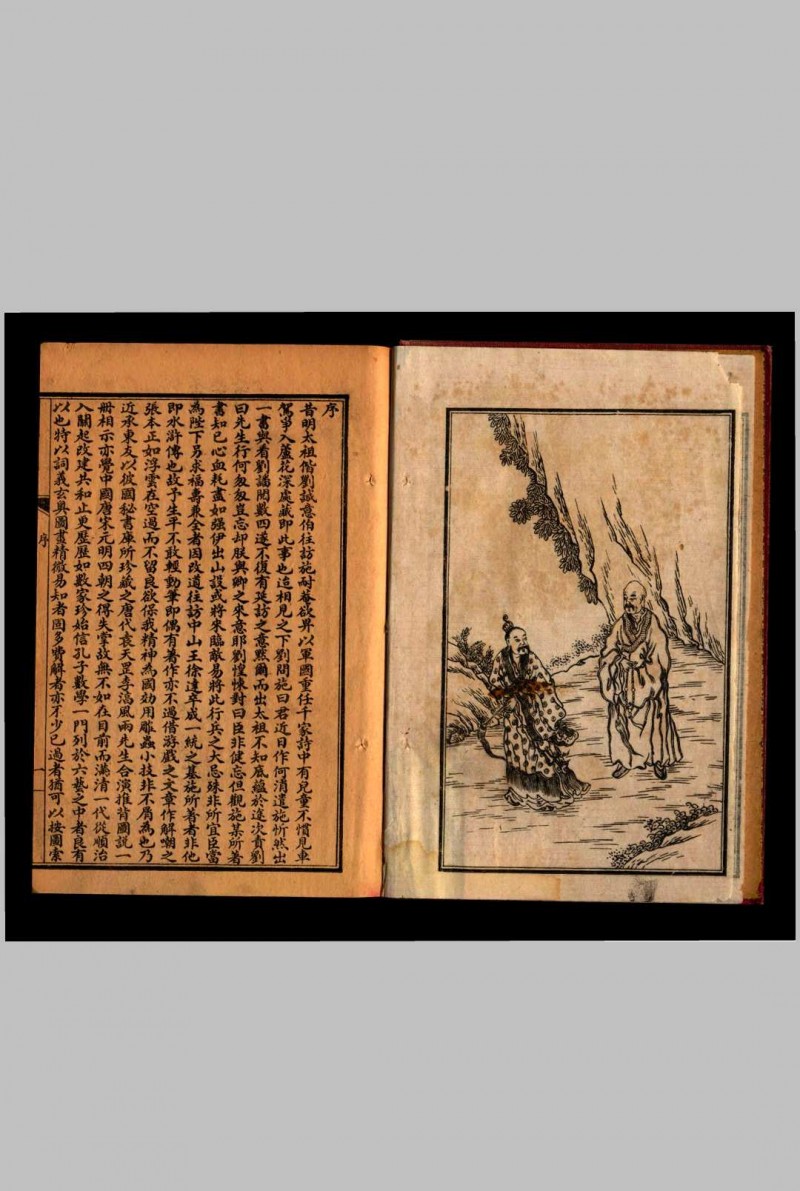 序
昔明太祖偕劉誠意伯往訪施耐菴欲畀以軍國重任千家詩中有兒童不慣見車
駕爭入蘆花深處藏即此事也迨相見之下劉問施曰君近日作何消遣施忻然出
一書與看劉譎閱數四遂不復有延訪之意默爾而出太祖不知底蘊於途次責劉
曰先生行何匆匆豈忘却朕與卿之來意耶劉惶悚對曰臣非健忘但觀施某所著
書知已心血耗盡如强伊出山設或將來臨敵易將此行兵之大忌殊非所宜臣當
為陛下另求福壽兼全者因改道往訪中山王徐達卒成一統之基施所著者非他
即水滸傳也故予生平不敢輕動筆即偶有著作亦不過借游戲之文章作解嘲之
張本正如浮雲在空過而不留良欲保我精神為國効用雕蟲小技非不屑為也乃
近承東友以彼國秘書庫所珍藏之唐代袁天罡李淳風兩先生合演推背圖說一
冊相示亦覺中國唐宋元明四朝之得失掌故無不如在目前而滿清一代從順治
入關起改建共和止更歷歷如數家珍始信孔子數學一門列於六藝之中者良有
以也特以詞義玄奧圖畫精微易知者固多費解者亦不少已過者猶可以按圖索
序
一